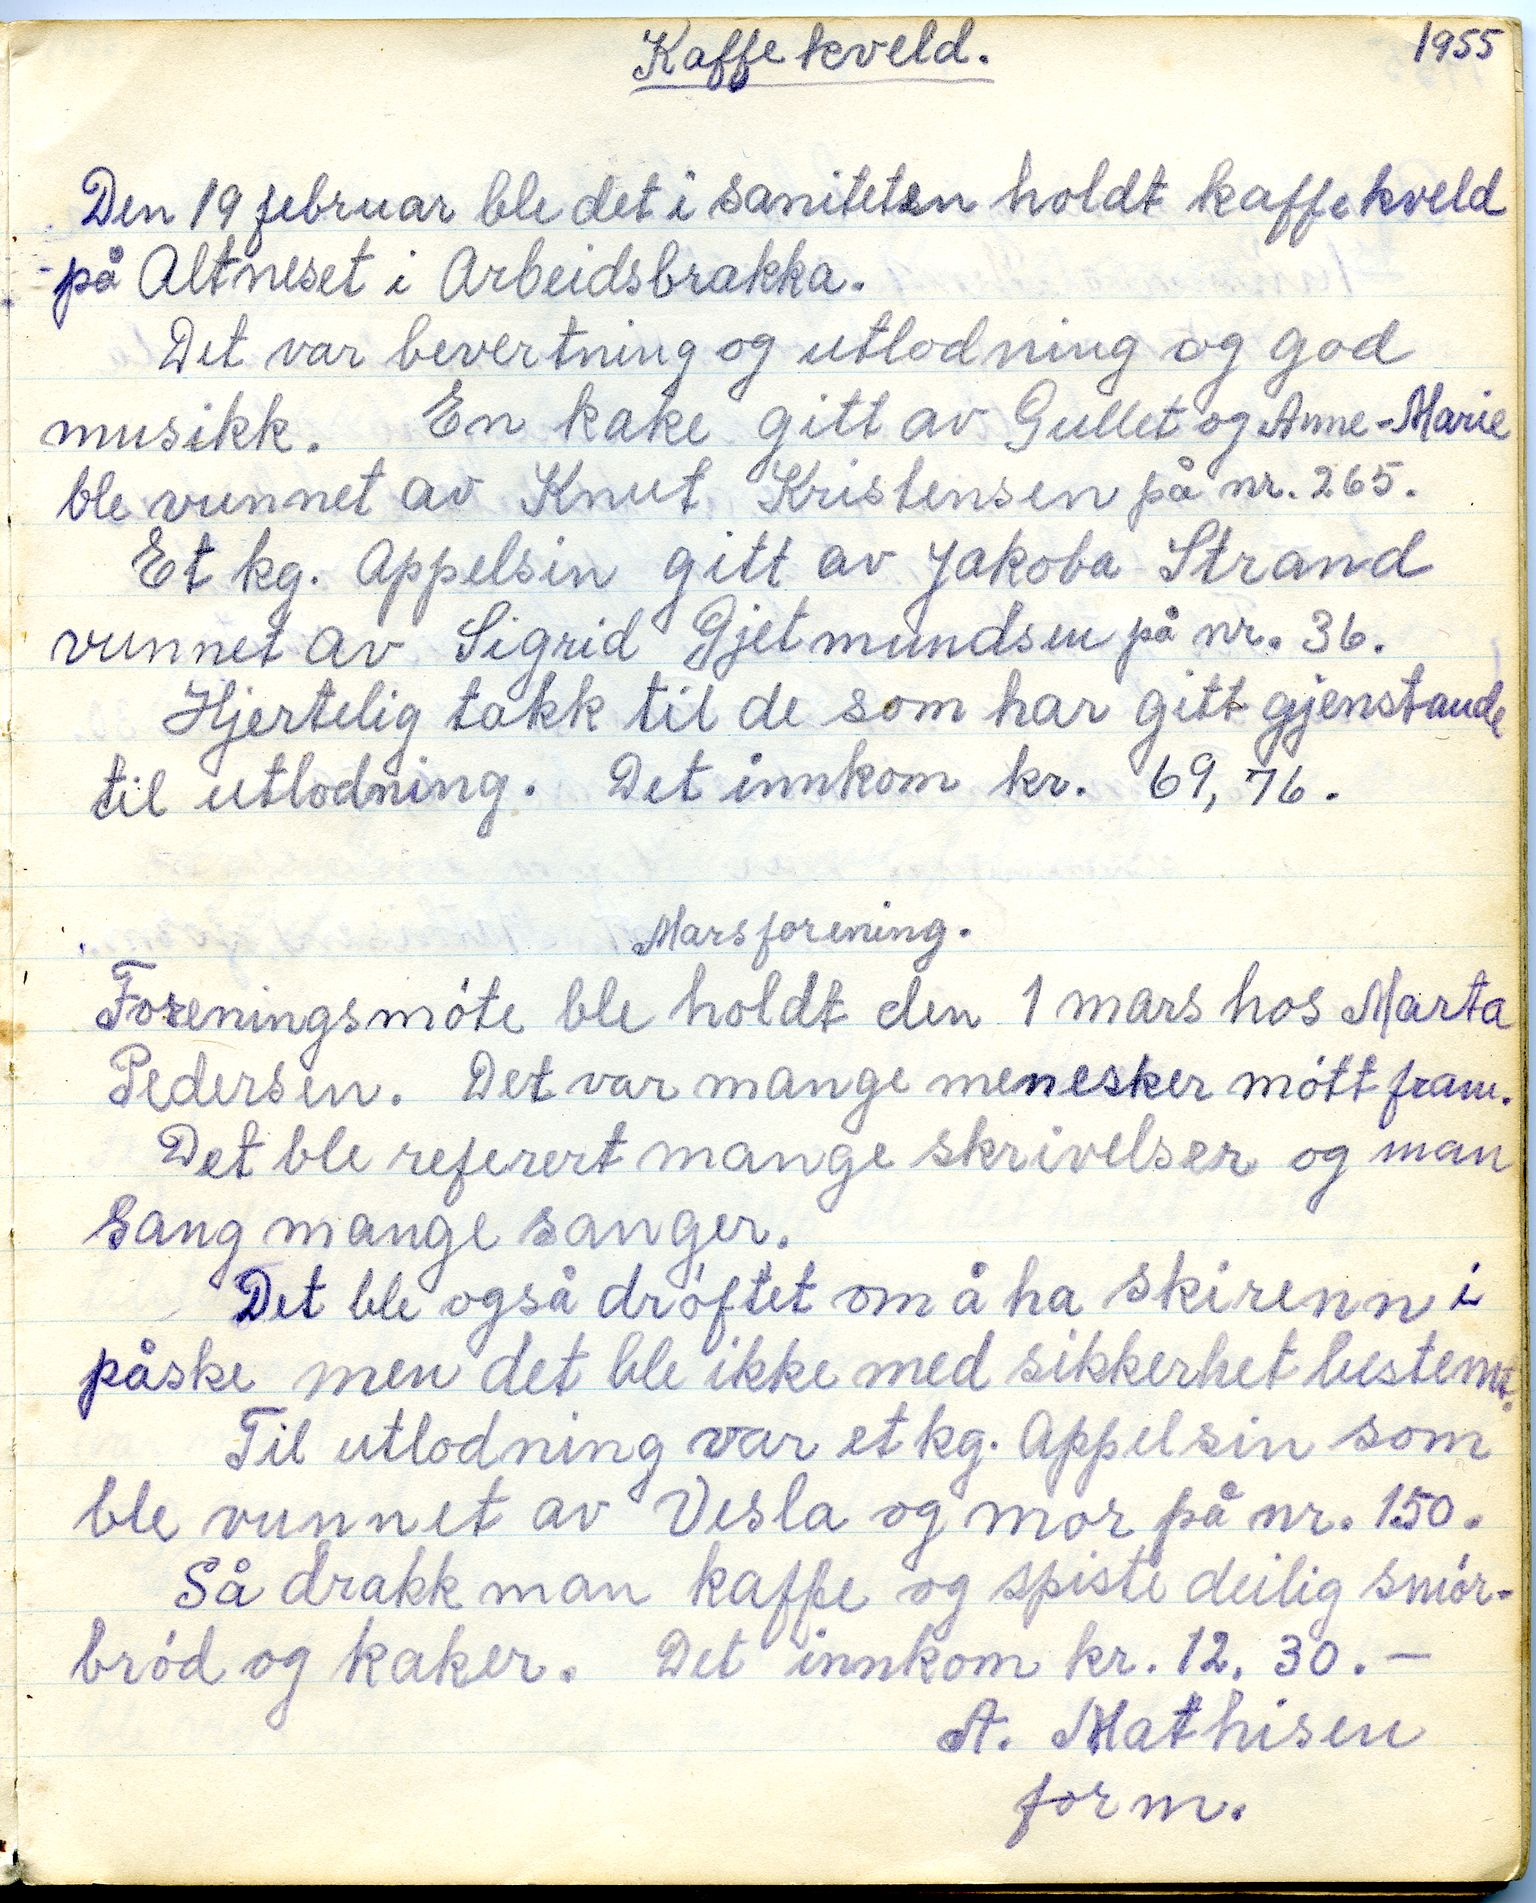 Kaffekveld.
1955
Den 19 februar ble det i saniteten holdt kaffekveld
på Altneset i Arbeidsbrakka.
Det var bevertning og utlodning og god
musikk. En kake gitt av Gullet og Anne-Marie
ble vunnet av Knut Kristensen på nr. 265.
Et kg. Appelsin gitt av Jakoba Strand
vunnet av Sigrid Gjetmundsen på nr. 36.
Hjertelig takk til de som har gitt gjenstande
til utlodning. Det innkom kr. 69,76.
Marsforening.
Foreningsmóte ble holdt den 1 mars hos Marta
Pedersen. Det var mange menesker mótt fram.
Det ble referert mange skrivelser og man
sang mange sanger.
Det ble også dróftet om å ha skirenn i
påske men det ble ikke med sikkerhet bestemt.
Til utlodning var et kg. Appelsin som
ble vunnet av Vesla og mor på nr. 150.
Så drakk man kaffe og spiste deilig smór-
bród og kaker. Det innkom kr. 12,30.-
A. Mathisen
form.